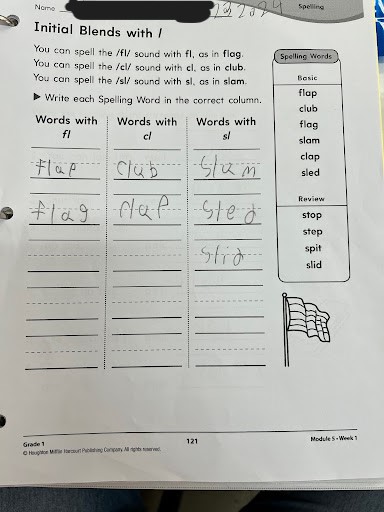 Name 2024 Spelling
Initial Blends with l
You can spell the /fl/ sound with fl, as in flag.
You can spell the /cl/ sound with cl, as in club.
You can spell the /sl/ sound with sl, as in slam.
▶ Write each Spelling Word in the correct column.
Words with fl
Words with cl
Words with sl
flap club slam
flag clap sled
slid
Spelling Words
Basic
flap
club
flag
slam
clap
sled
Review
stop
step
spit
slid
Grade 1 121 Module 5 • Week 1
© Houghton Mifflin Harcourt Publishing Company. All rights reserved.